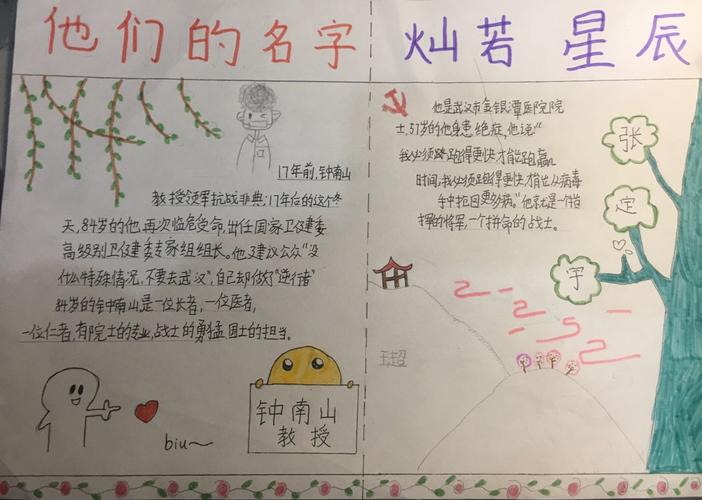 他们的名字 灿若星辰
17年前,钟南山
教授领军抗战非典;17年后的这个冬
天,84岁的他,再次临危受命,出任国家卫健委
高级别卫健委专家组组长。他建议公众“没
什么特殊情况,不要去武汉”,自己却做了“逆行者”
84岁的钟南山是一位长者,一位医者,
一位仁者,有院士的专业,战士的勇猛,国士的担当。
biu~
钟南山
教授
他是武汉市金银潭医院院
士,57岁的他身患绝症,他说:“
我必须跑得更快才能跑赢
时间,我必须跑得更快才能从病毒
手中抢回更多病。”他就是一个指
挥的将军,一个拼命的战士。
张
定
宇
王超